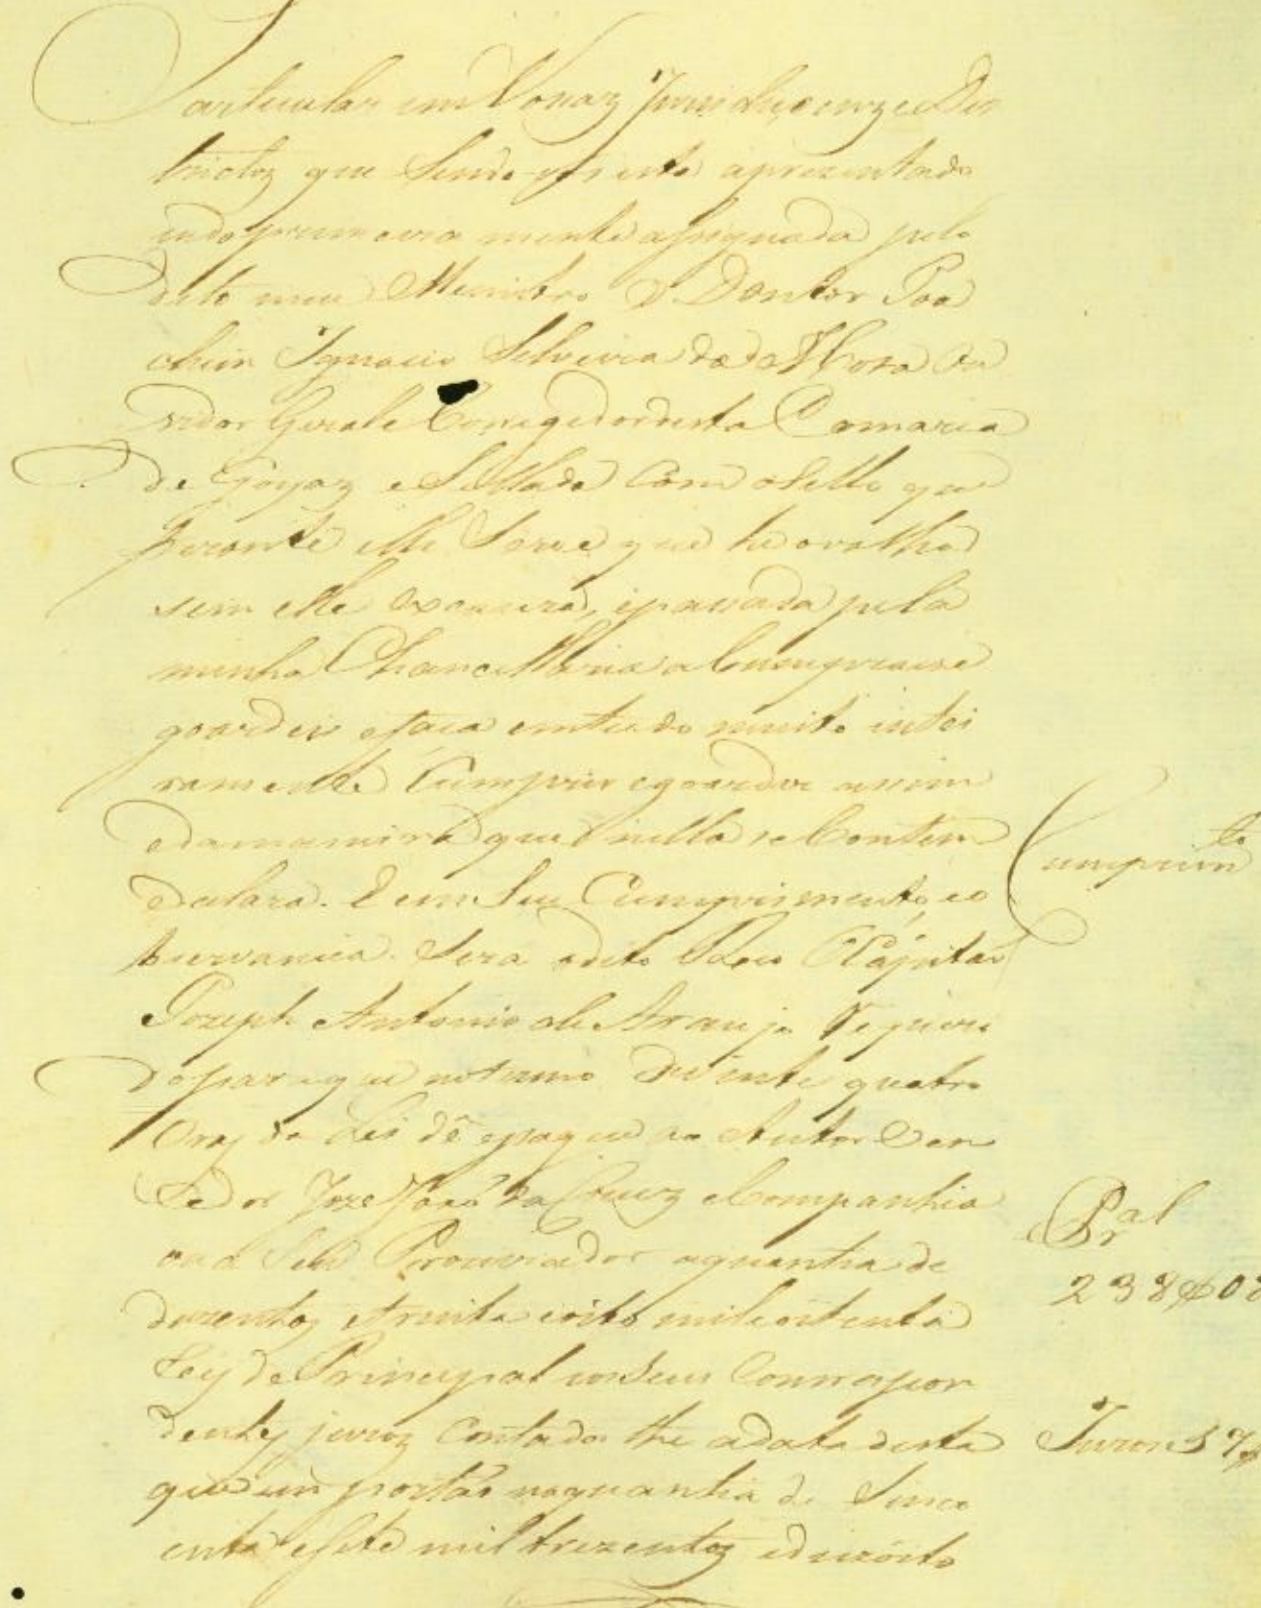 Particular em Vossas Jurisdiçoenz e Dis
trictoz que sendo vos esta aprezentada
indo primeira mente assignada pelo
dito meu Ministro o Doutor Joa
chim Ignacio Silveira da Mota Ou
vidor Geral e Corregedor desta Comarca
de Goyaz e Sellada com o Sello que
perante elle Serve que he o valha
sem elle ex cauza, e passada pela
minha Chancellaria a Cumpraes e
goardeis e faça em tudo muito intei
ramente Cumprir e goardar assim
e da maneira que nella se Contem
e declara. E em Seu Cumprimento, e o
bservancia. Sera o dito Reo Capitaõ
Jozeph Antonio de Araujo requeri
do para que no termo de vinte quatro
Oraz da Lei dê e pague ao Autor Cre
dor Joze da Cruz e Companhia
ou a Seu Procurador a quantia de
duzentoz e trinta e oito mil e oitenta
Reiz de Principal com Seus Correspon
dentes juroz Contados the a data desta
que im portaõ na quantia de Sinco
enta e Sete mil trezentoz e dezoito
Cumprim.to
Pr.al
238$08
Juros 57$